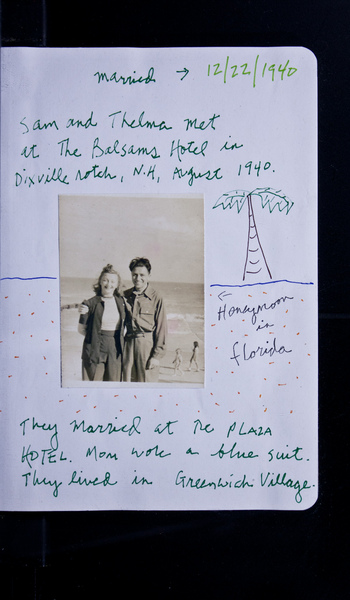 married → 12/22/1940
Sam and Thelma met
at The Balsams Hotel in
Dixville notch, N.H, August 1940.
← Honeymoon
in
florida
They married at The PLAZA
HOTEL. Mom wore a blue suit.
They lived in Greenwich Village.